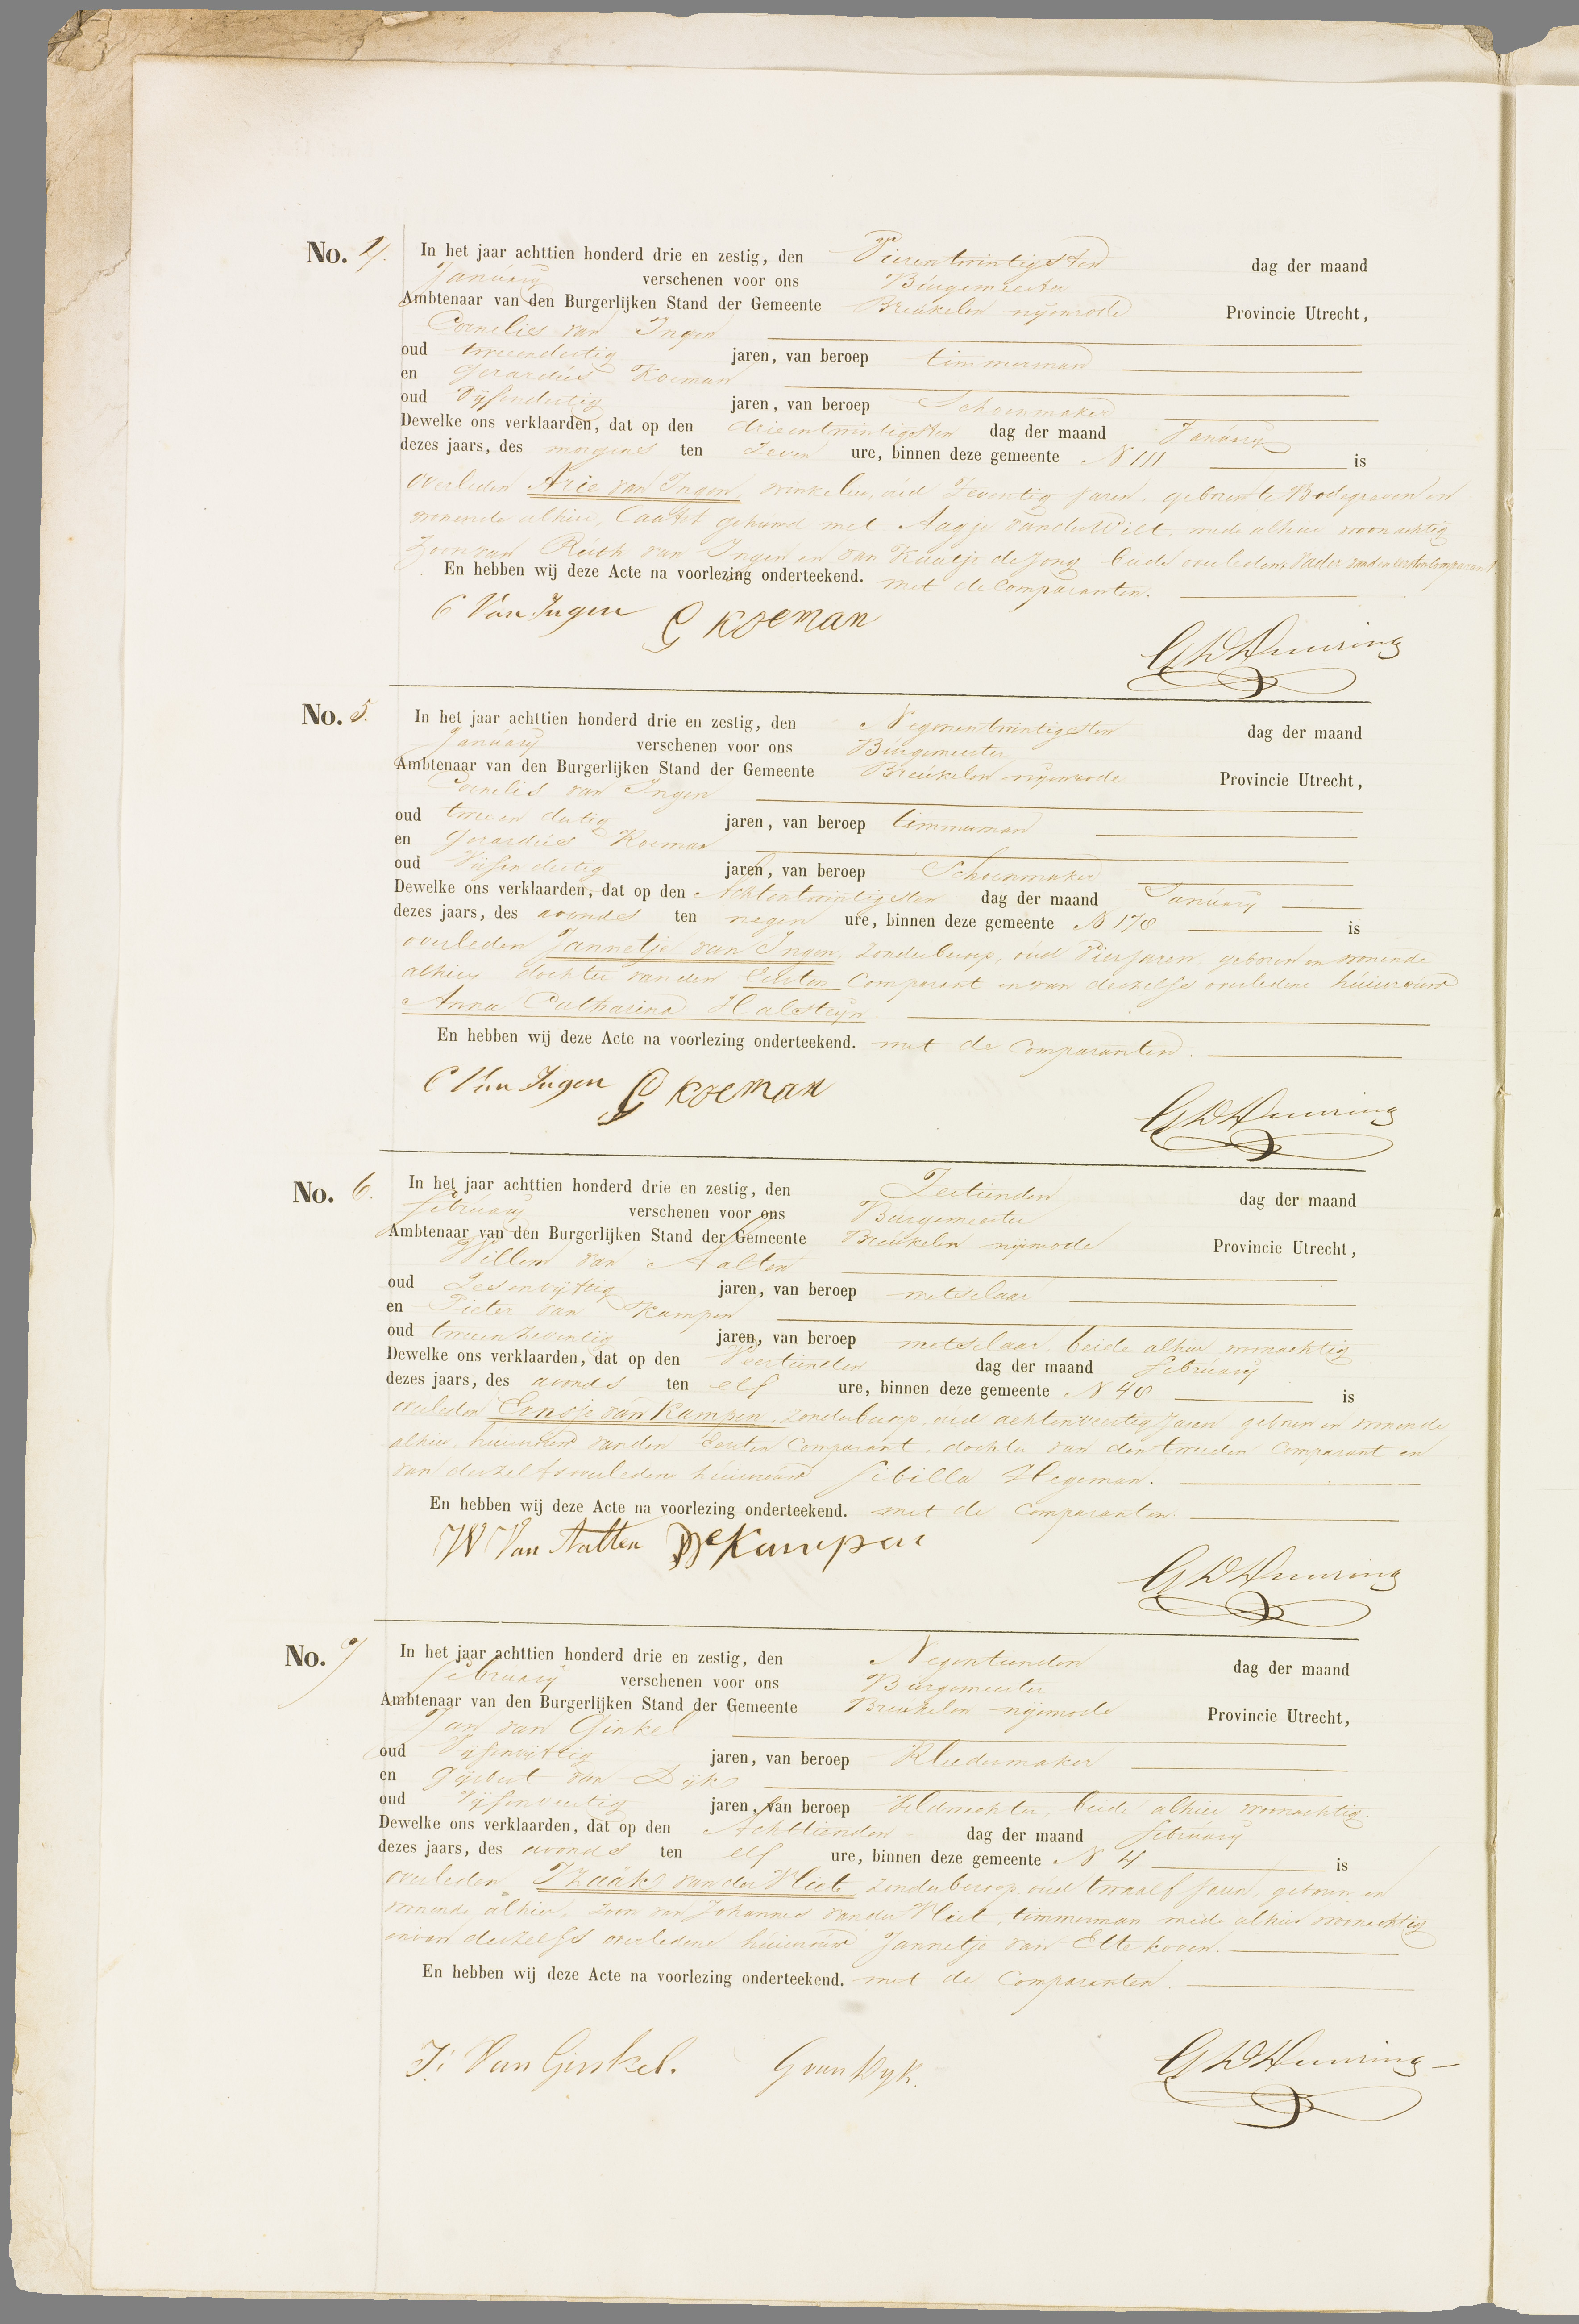 No. 4. In het jaar achttien honderd drie en zestig, den Vierentwintigsten dag der maand
Januarij verschenen voor ons Burgemeester
Ambtenaar van den Burgerlijken Stand der Gemeente Breukelen nijenrode Provincie Utrecht,
Cornelis van Ingen
oud tweeendertig jaren, van beroep timmerman
en Gerardus Koeman
oud Vijfendertig jaren, van beroep Schoenmaker
Dewelke ons verklaarden, dat op den drieentwintigsten dag der maand Januarij
dezes jaars, des morgens ten Zeven ure, binnen deze gemeente N 111 is
overleden Arie van Ingen, winkelier, oud Zeventig jaren, geboren te Bodegraven en
wonende alhier, laatst gehuwd met Aagje van der Wilt, mede alhier woonachtig
Zoon van Ruth van Ingen en van Kaatje de Jong beide overleden. Vader van den eersten Comparant.
En hebben wij deze Acte na voorlezing onderteekend. met de Comparanten.
C Van Ingen G Koeman
No. 5. In het jaar achttien honderd drie en zestig, den Negenentwintigsten dag der maand
Januarij verschenen voor ons Burgemeester
Ambtenaar van den Burgerlijken Stand der Gemeente Breukelen nijenrode Provincie Utrecht,
Cornelis van Ingen
oud twee en dertig jaren, van beroep timmerman
en Gerardus Koeman
oud Vijfendertig jaren, van beroep Schoenmaker
Dewelke ons verklaarden, dat op den Achtentwintigsten dag der maand Januarij
dezes jaars, des avonds ten negen ure, binnen deze gemeente N 178 is
overleden Jannetje van Ingen, zonder beroep, oud Vier jaren, geboren en wonende
alhier, dochter van den Eersten Comparant en van deszelfs overledene huisvrouw
Anna Catharina Halsteijn.
En hebben wij deze Acte na voorlezing onderteekend. met de Comparanten.
C Van Ingen G Koeman
No. 6. In het jaar achttien honderd drie en zestig, den Zestienden dag der maand
februarij verschenen voor ons Burgemeester
Ambtenaar van den Burgerlijken Stand der Gemeente Breukelen nijenrode Provincie Utrecht,
Willem van Aalten
oud Zesenvijftig jaren, van beroep metselaar
en Pieter van Kampen
oud tweeenzeventig jaren, van beroep metselaar, beide alhier woonachtig
Dewelke ons verklaarden, dat op den Veertienden dag der maand februarij
dezes jaars, des avonds ten elf ure, binnen deze gemeente N 48 is
overleden Ernsje van Kampen, zonder beroep, oud achtenveertig Jaren, geboren en wonende
alhier, huisvrouw van den Eersten Comparant, dochter van den tweeden Comparant en
van deszelfs overledene huisvrouw Sibilla Hegeman.
En hebben wij deze Acte na voorlezing onderteekend. met de Comparanten.
W Van Aalten Kampen
No. 7 In het jaar achttien honderd drie en zestig, den Negentienden dag der maand
februarij verschenen voor ons Burgemeester
Ambtenaar van den Burgerlijken Stand der Gemeente Breukelen nijenrode Provincie Utrecht,
Jan van Ginkel
oud Vijfenvijftig jaren, van beroep Kleedermaker
en Gijsbert van Dijk
oud Vijfenveertig jaren, van beroep Veldwachter, beide alhier woonachtig.
Dewelke ons verklaarden, dat op den Achttienden dag der maand februarij
dezes jaars, des avonds ten elf ure, binnen deze gemeente N 4 is
overleden Izaäk van der Vliet zonder beroep, oud twaalf jaren, geboren en
wonende alhier, zoon van Johannes van der Vliet, timmerman mede alhier woonachtig
en van deszelfs overledene huisvrouw Jannetje van Ettekoven.
En hebben wij deze Acte na voorlezing onderteekend. met de Comparanten.
J. Van Ginkel. G van Dyk.